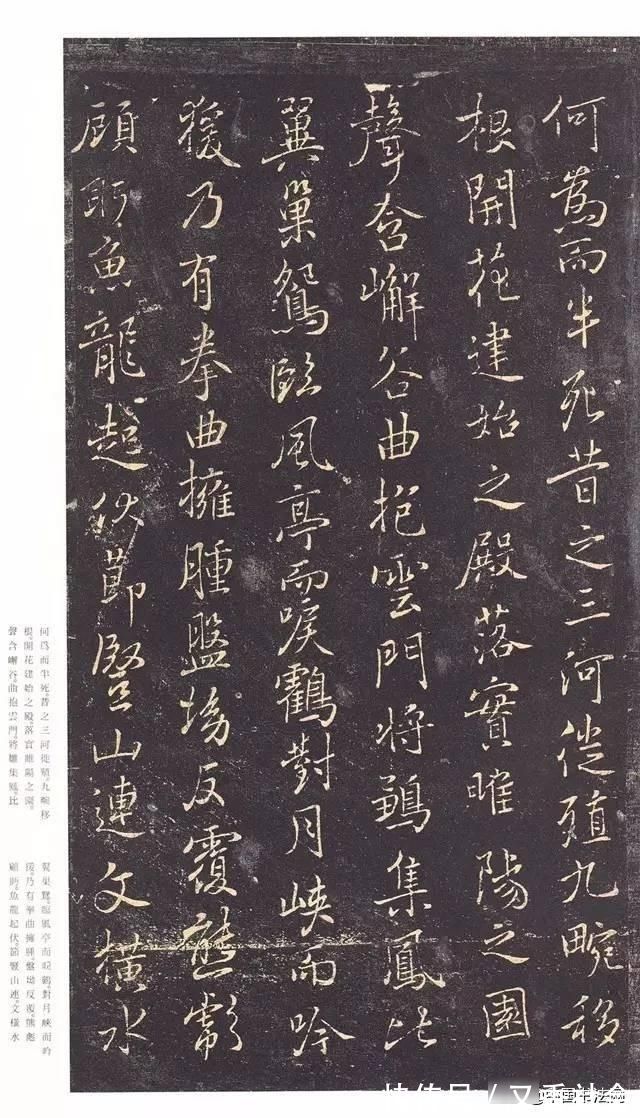 何為而半死昔之三河徙殖九畹移
根開花建始之殿落實睢陽之園
聲含嶰谷曲抱雲門將鶵集鳳比
翼巢鴛臨風亭而唳鶴對月峽而吟
猨乃有拳曲擁腫盤坳反覆熊彪
顧盼魚龍起伏節豎山連文橫水
何爲而半死。昔之三河徙殖。九畹移
根。開花。建始之殿。落實睢陽之園。
聲含嶰谷。曲抱雲門。將雛集鳳。比
翼巢鴛。臨風亭而唳鶴。對月峽而吟
猨。乃有拳曲擁腫。盤坳反覆。熊彪
顧盼。魚龍起伏。節豎山連。文橫水
中国书法网